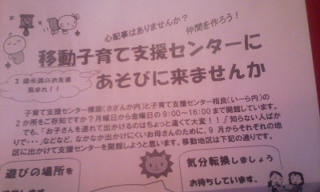 心配事はありませんか？
仲間を作ろう！
移動子育て支援センターに
あそびに来ませんか
2歳未満のお友達
集まれ！！
子育て支援センター榛原(さざんか内)と子育て支援センター相良(いーら内)の
2か所をご存知ですか？月曜日から金曜日の9:00～16:00まで開館しています。
でも、「お子さんを連れて出かけるのはちょっと遠くて大変！！」「知らない人ばか
りで・・・」などなど、なかなか出かけにくいお母さんのために、9月からそれぞれの地
区に出かけて支援センターを開館しようと思います。移動地区は下記の通りです。
遊びの場所を
気分転換しましょう
お待ちしています。